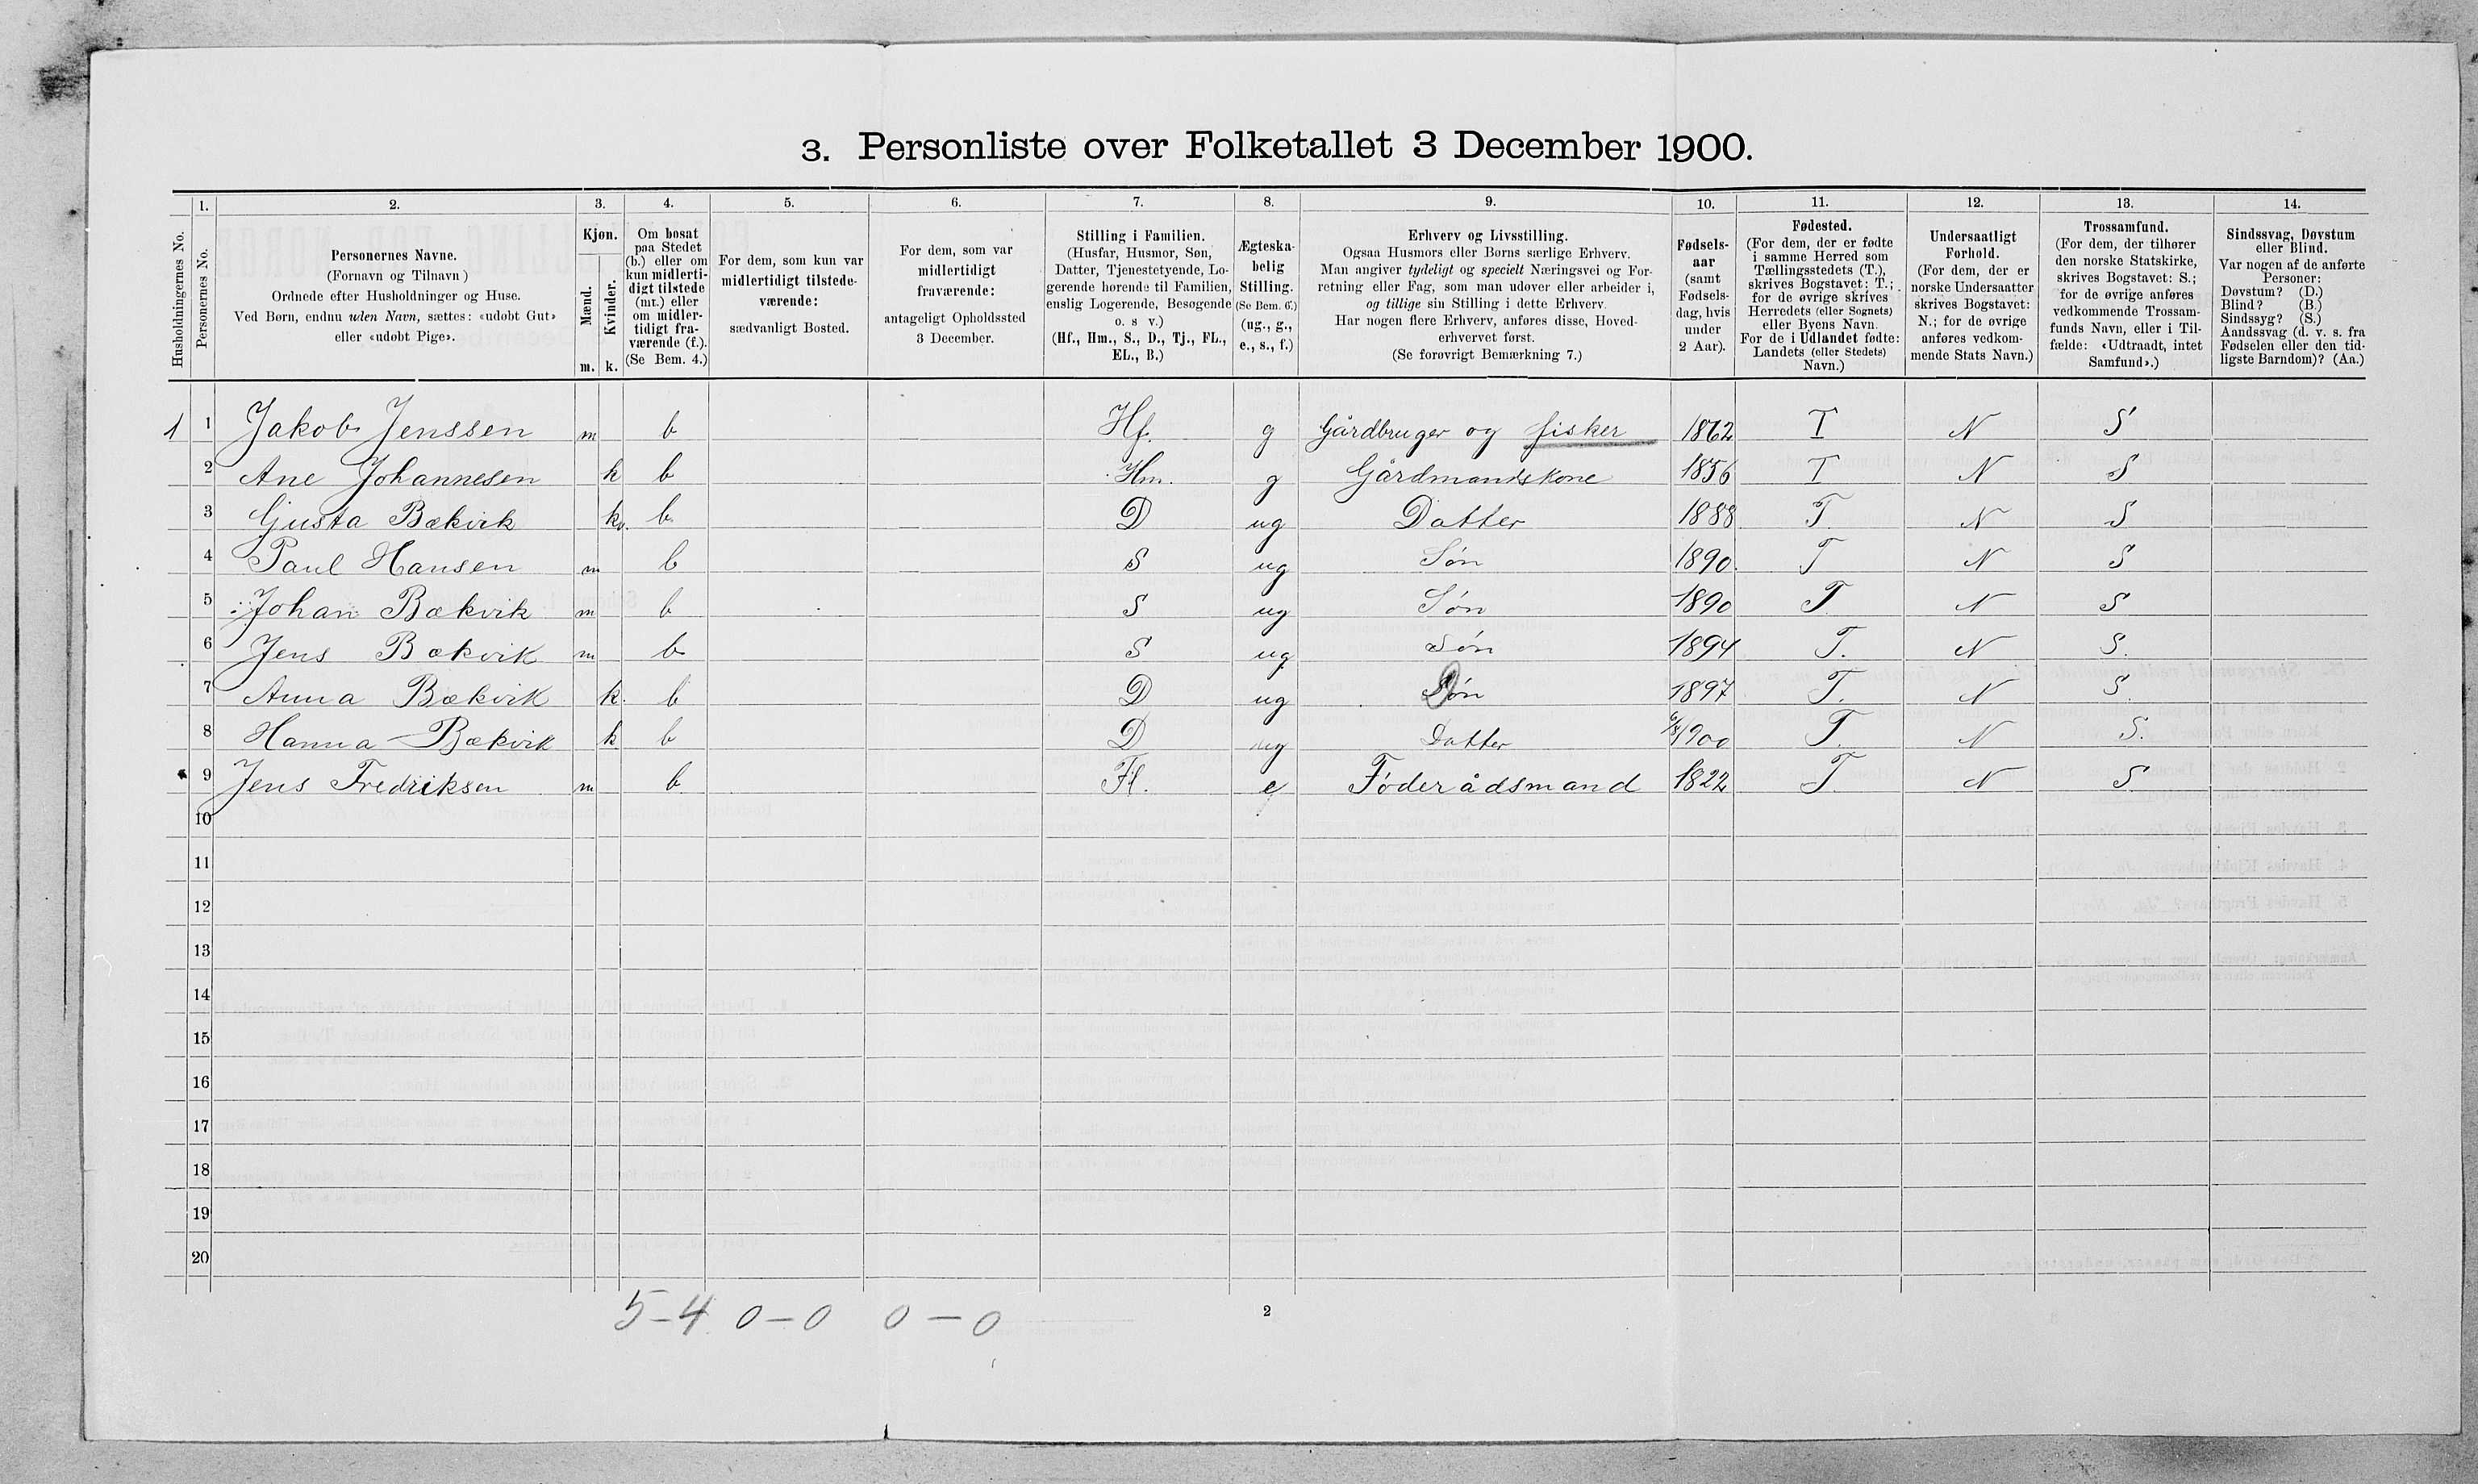 3. Personliste over Folketallet 3 December 1900.
1. 2. 3. 4. 5. 6. 7. 8. 9. 10. 11. 12. 13. 14.
Husholdningernes No.
Personernes No.
Personernes Navne.
(Fornavn og Tilnavn)
Ordnede efter Husholdninger og Huse.
Ved Børn, endnu uden Navn, sættes: «udøbt Gut»
eller «udøbt Pige».
Kjøn.
Mænd.
Kvinder.
m. k.
Om bosat
paa Stedet
(b.) eller om
kun midlerti-
digt tilstede
(mt.) eller
om midler-
tidigt fra-
værende (f.).
(Se Bem. 4.)
For dem, som kun var
midlertidigt tilstede-
værende:
sædvanligt Bosted.
For dem, som var
midlertidigt
fraværende:
antageligt Opholdssted
3 December.
Stilling i Familien.
(Husfar, Husmor, Søn,
Datter, Tjenestetyende, Lo-
gerende hørende til Familien,
enslig Logerende, Besøgende
o. s v.)
(Hf., Hm., S., D., Tj., FL.,
EL., B.)
Ægteska-
belig
Stilling.
(Se Bem. 6.)
(ug., g.,
e., s., f.)
Erhverv og Livsstilling.
Ogsaa Husmors eller Børns særlige Erhverv.
Man angiver tydeligt og specielt Næringsvei og For-
retning eller Fag, som man udøver eller arbeider i,
og tillige sin Stilling i dette Erhverv.
Har nogen flere Erhverv, anføres disse, Hoved-
erhvervet først.
(Se forøvrigt Bemærkning 7.)
Fødsels-
aar
(samt
Fødsels-
dag, hvis
under
2 Aar).
Fødested.
(For dem, der er fødte
i samme Herred som
Tællingsstedets (T.),
skrives Bogstavet: T.;
for de øvrige skrives
Herredets (eller Sognets)
eller Byens Navn.
For de i Udlandet fødte:
Landets (eller Stedets)
Navn.)
Undersaatligt
Forhold.
(For dem, der er
norske Undersaatter
skrives Bogstavet:
N.; for de øvrige
anføres vedkom-
mende Stats Navn.)
Trossamfund.
(For dem, der tilhører
den norske Statskirke,
skrives Bogstavet: S.;
for de øvrige anføres
vedkommende Trossam-
funds Navn, eller i Til-
fælde: «Udtraadt, intet
Samfund».)
Sindssvag, Døvstum
eller Blind.
Var nogen af de anførte
Personer:
Døvstum? (D.)
Blind? (B.)
Sindssyg? (S.)
Aandssvag (d. v. s. fra
Fødselen eller den tid-
ligste Barndom)? (Aa.)
1 1 Jakob Jenssen m b Hf. g Gårdbruger og fisker 1862 T N S
2 Ane Johannesen k b Hm. g Gårdmandskone 1856 T N S
3 Gjusta Bækvik k. b. D ug Datter 1888 T. N S
4 Paul Hansen m b S ug Søn 1890. T N S
5 Johan Bækvik m b S ug Søn 1890 T. N S
6 Jens Bækvik m b S ug Søn 1894 T. N S.
7 Anna Bækvik k. b D ug Søn 1897 T. N S.
8 Hanna Bækvik k b D ug Datter 1900 T. N S.
9 Jens Fredriksen m b Fl. e Føderådsmand 1822 T. N S.
10
11
12
13
14
15
16
17
18
19
20
5-4 0-0 0-0
2